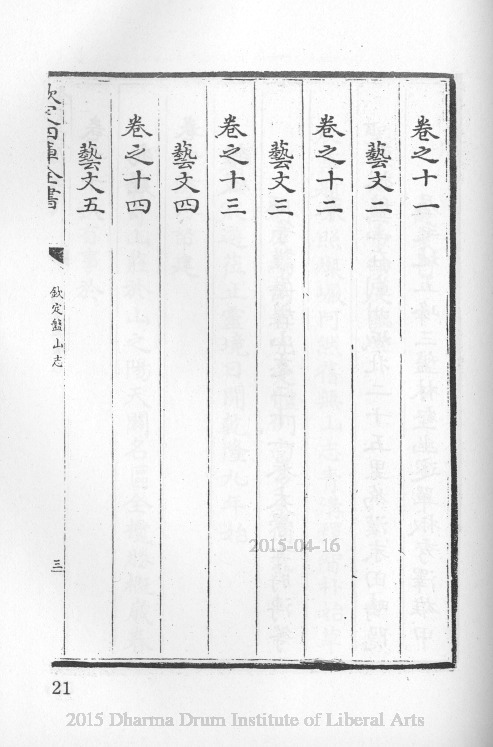 卷之十一
藝文二
卷之十二
藝文三
卷之十三
藝文四
卷之十四
藝文五
欽定四庫全書
欽定盤山志
三
2015-04-16
21
2015 Dharma Drum Institute of Liberal Arts